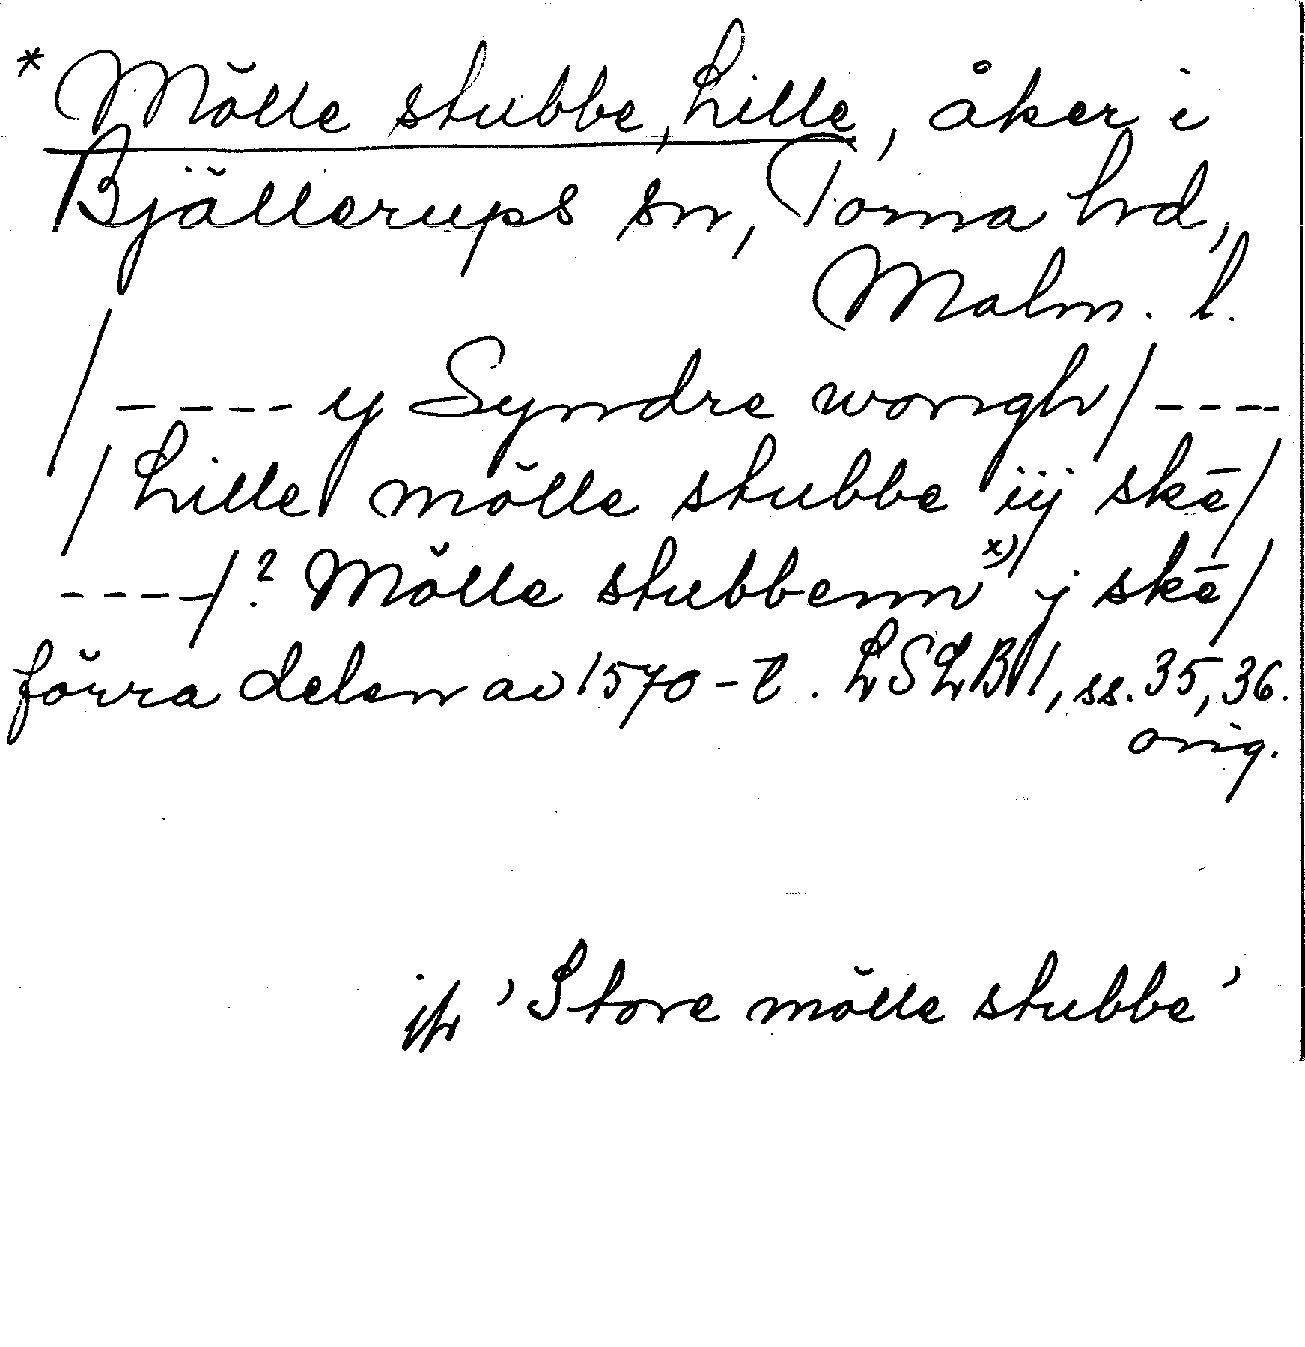 * Mölle stubbe, Lille, åker i
Bjällerups sn, Torna hd,
Malm. l.
/ ---- y Syndre wongh / ----
/ Lille mölle stubbe iij skē /
----/? Mölle stubbenn x) j skē /
förra delen av 1570-t. LSLB 1, ss. 35, 36.
orig.
jfr 'Store mölle stubbe'